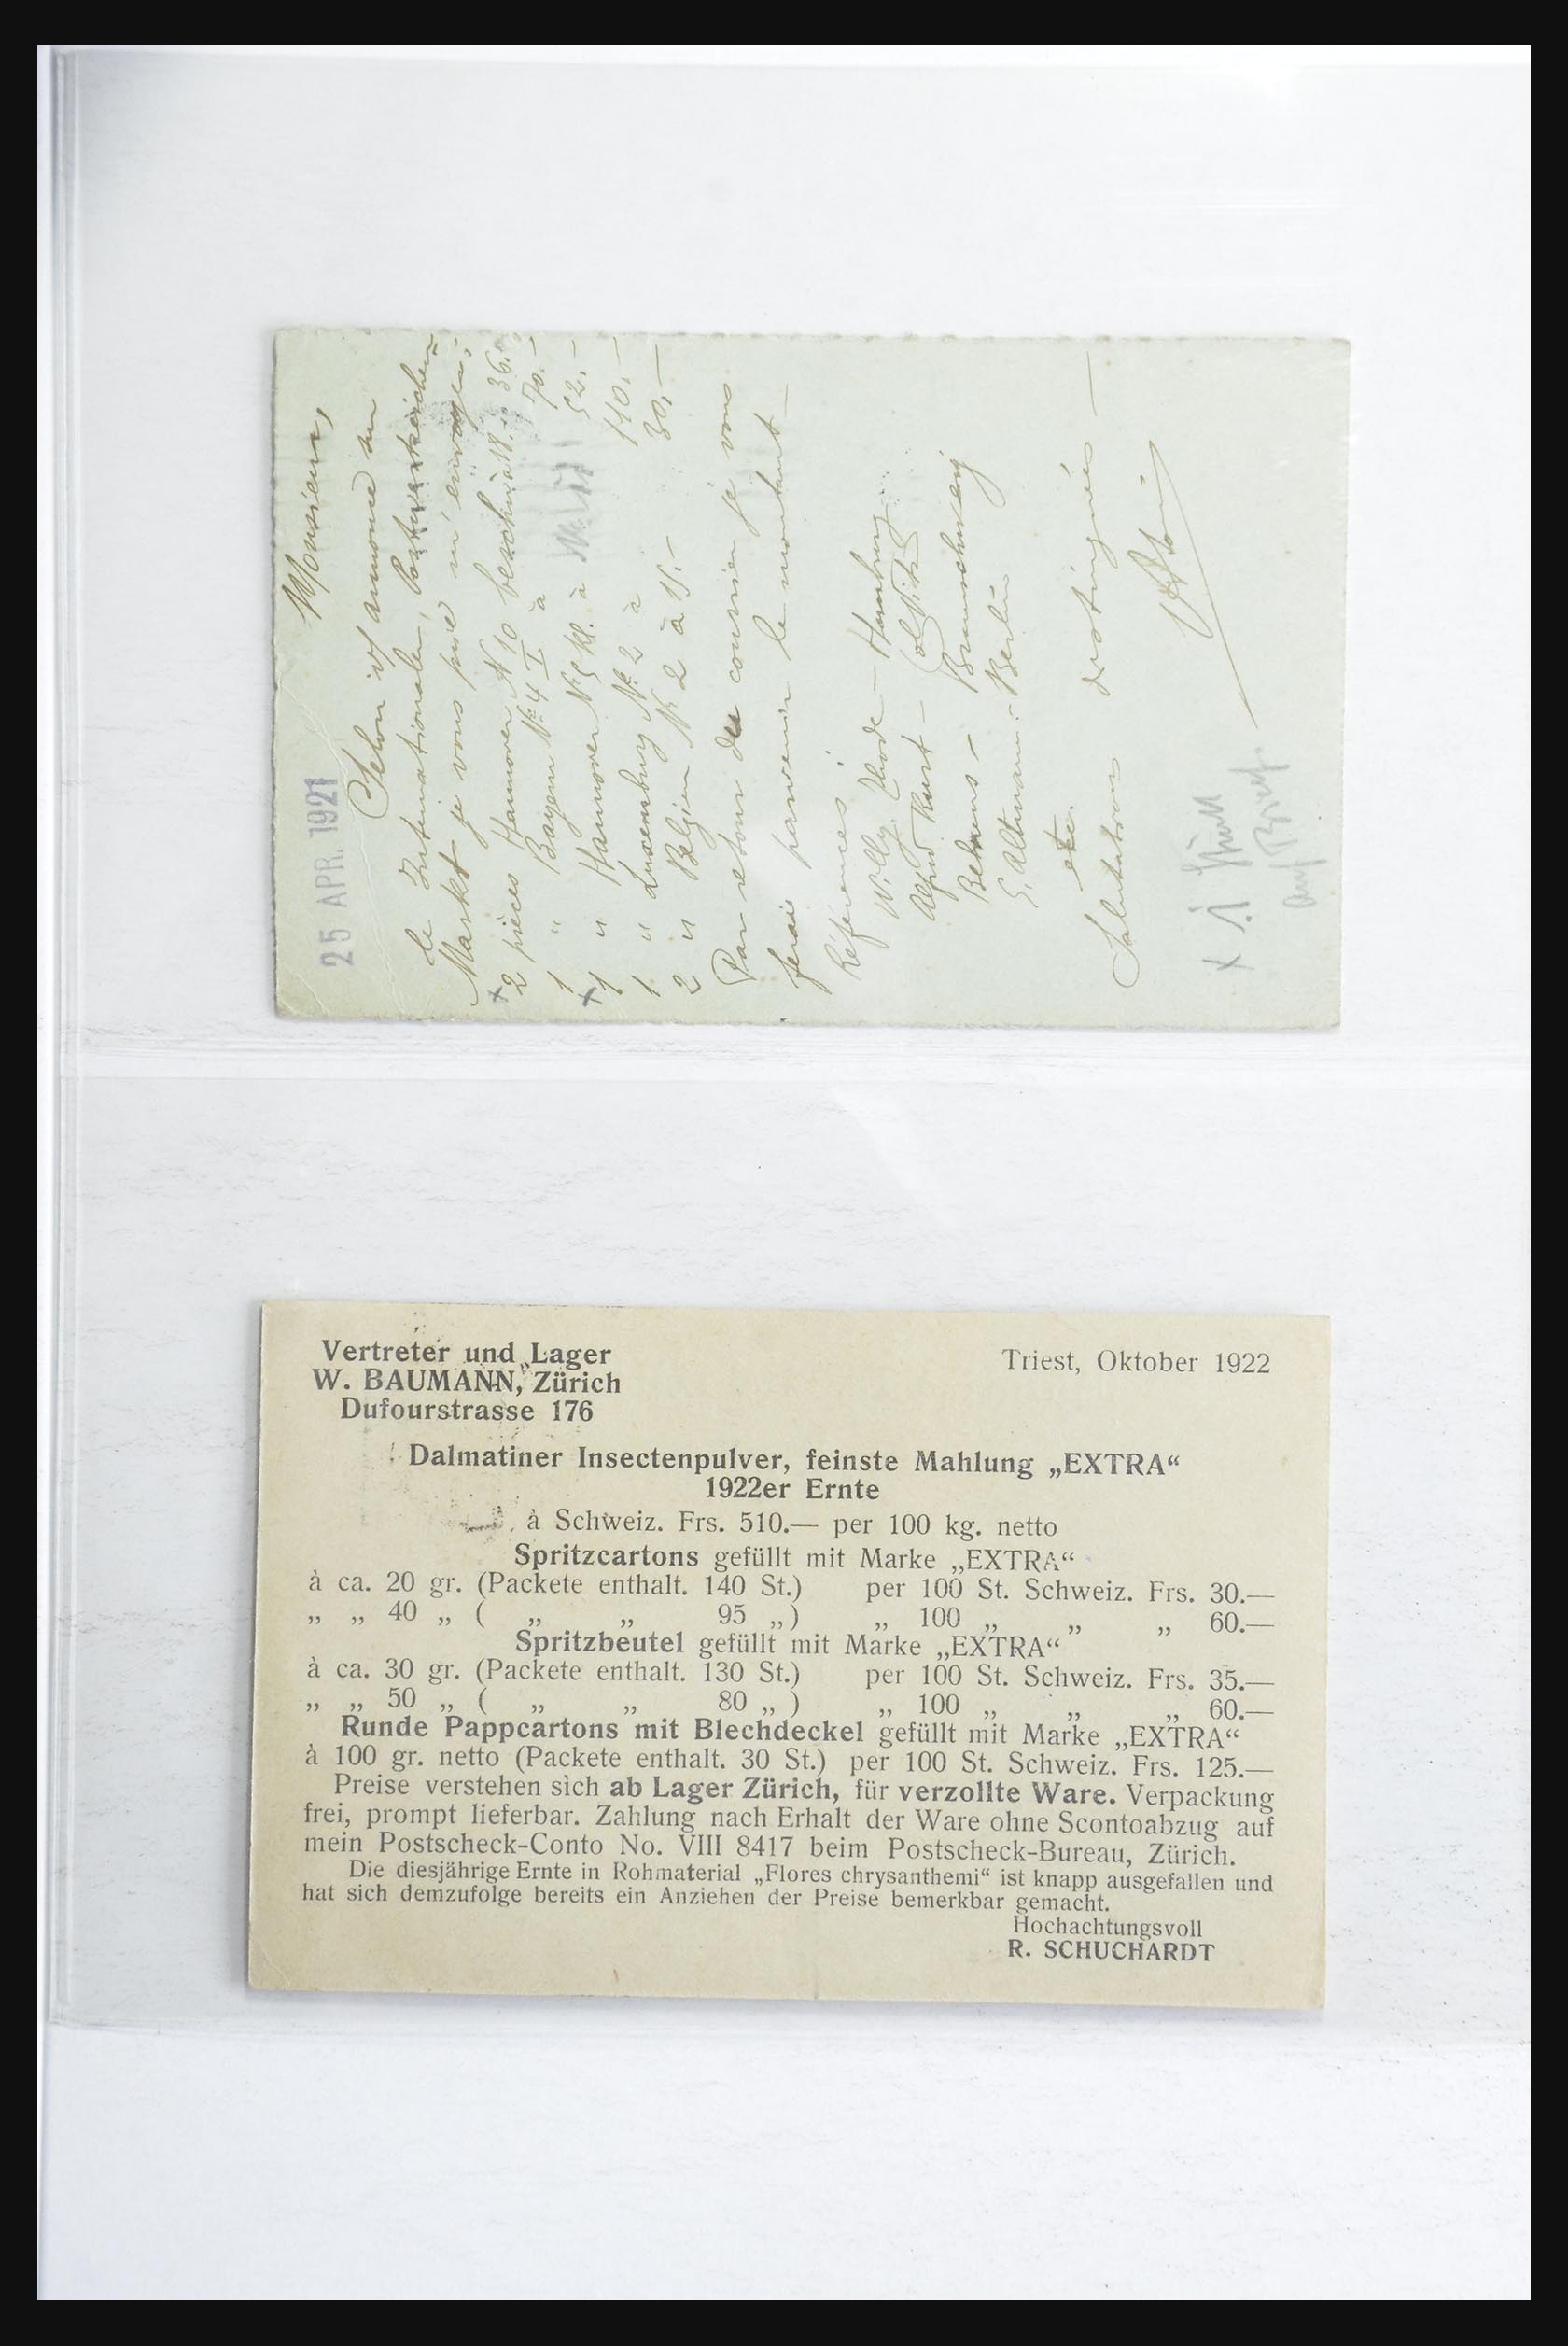 25 APR. 1921
Monsieur,
Selon v/ annonce sur
le Internationaler Postwertzeichen-
Markt je vous prie m'envoyer:
2 pièces Hannover N 10 à 18.- 36.-
1 " Bayern No 4 I à 70.-
1 " Hannover No à 52.-
1 " Luxemburg No 2 à 110.-
2 " Belgien No 2 à 15.- 30.-
Par retour du courrier je vous
ferai parvenir le montant
Références:
Willy Rhode - Hamburg
Alfred Kurt - Colditz
Behrens - Braunschweig
E. Altmann - Berlin
etc.
Salutations distinguées
auf Brief
Vertreter und Lager
W. BAUMANN, Zürich
Dufourstrasse 176
Triest, Oktober 1922
Dalmatiner Insectenpulver, feinste Mahlung „EXTRA“
1922er Ernte
à Schweiz. Frs. 510.— per 100 kg. netto
Spritzcartons gefüllt mit Marke „EXTRA“
à ca. 20 gr. (Packete enthalt. 140 St.) per 100 St. Schweiz. Frs. 30.—
„ „ 40 „ ( „ „ 95 „ ) „ 100 „ „ „ 60.—
Spritzbeutel gefüllt mit Marke „EXTRA“
à ca. 30 gr. (Packete enthalt. 130 St.) per 100 St. Schweiz. Frs. 35.—
„ „ 50 „ ( „ „ 80 „ ) „ 100 „ „ „ 60.—
Runde Pappcartons mit Blechdeckel gefüllt mit Marke „EXTRA“
à 100 gr. netto (Packete enthalt. 30 St.) per 100 St. Schweiz. Frs. 125.—
Preise verstehen sich ab Lager Zürich, für verzollte Ware. Verpackung
frei, prompt lieferbar. Zahlung nach Erhalt der Ware ohne Scontoabzug auf
mein Postscheck-Conto No. VIII 8417 beim Postscheck-Bureau, Zürich.
Die diesjährige Ernte in Rohmaterial „Flores chrysanthemi“ ist knapp ausgefallen und
hat sich demzufolge bereits ein Anziehen der Preise bemerkbar gemacht.
Hochachtungsvoll
R. SCHUCHARDT